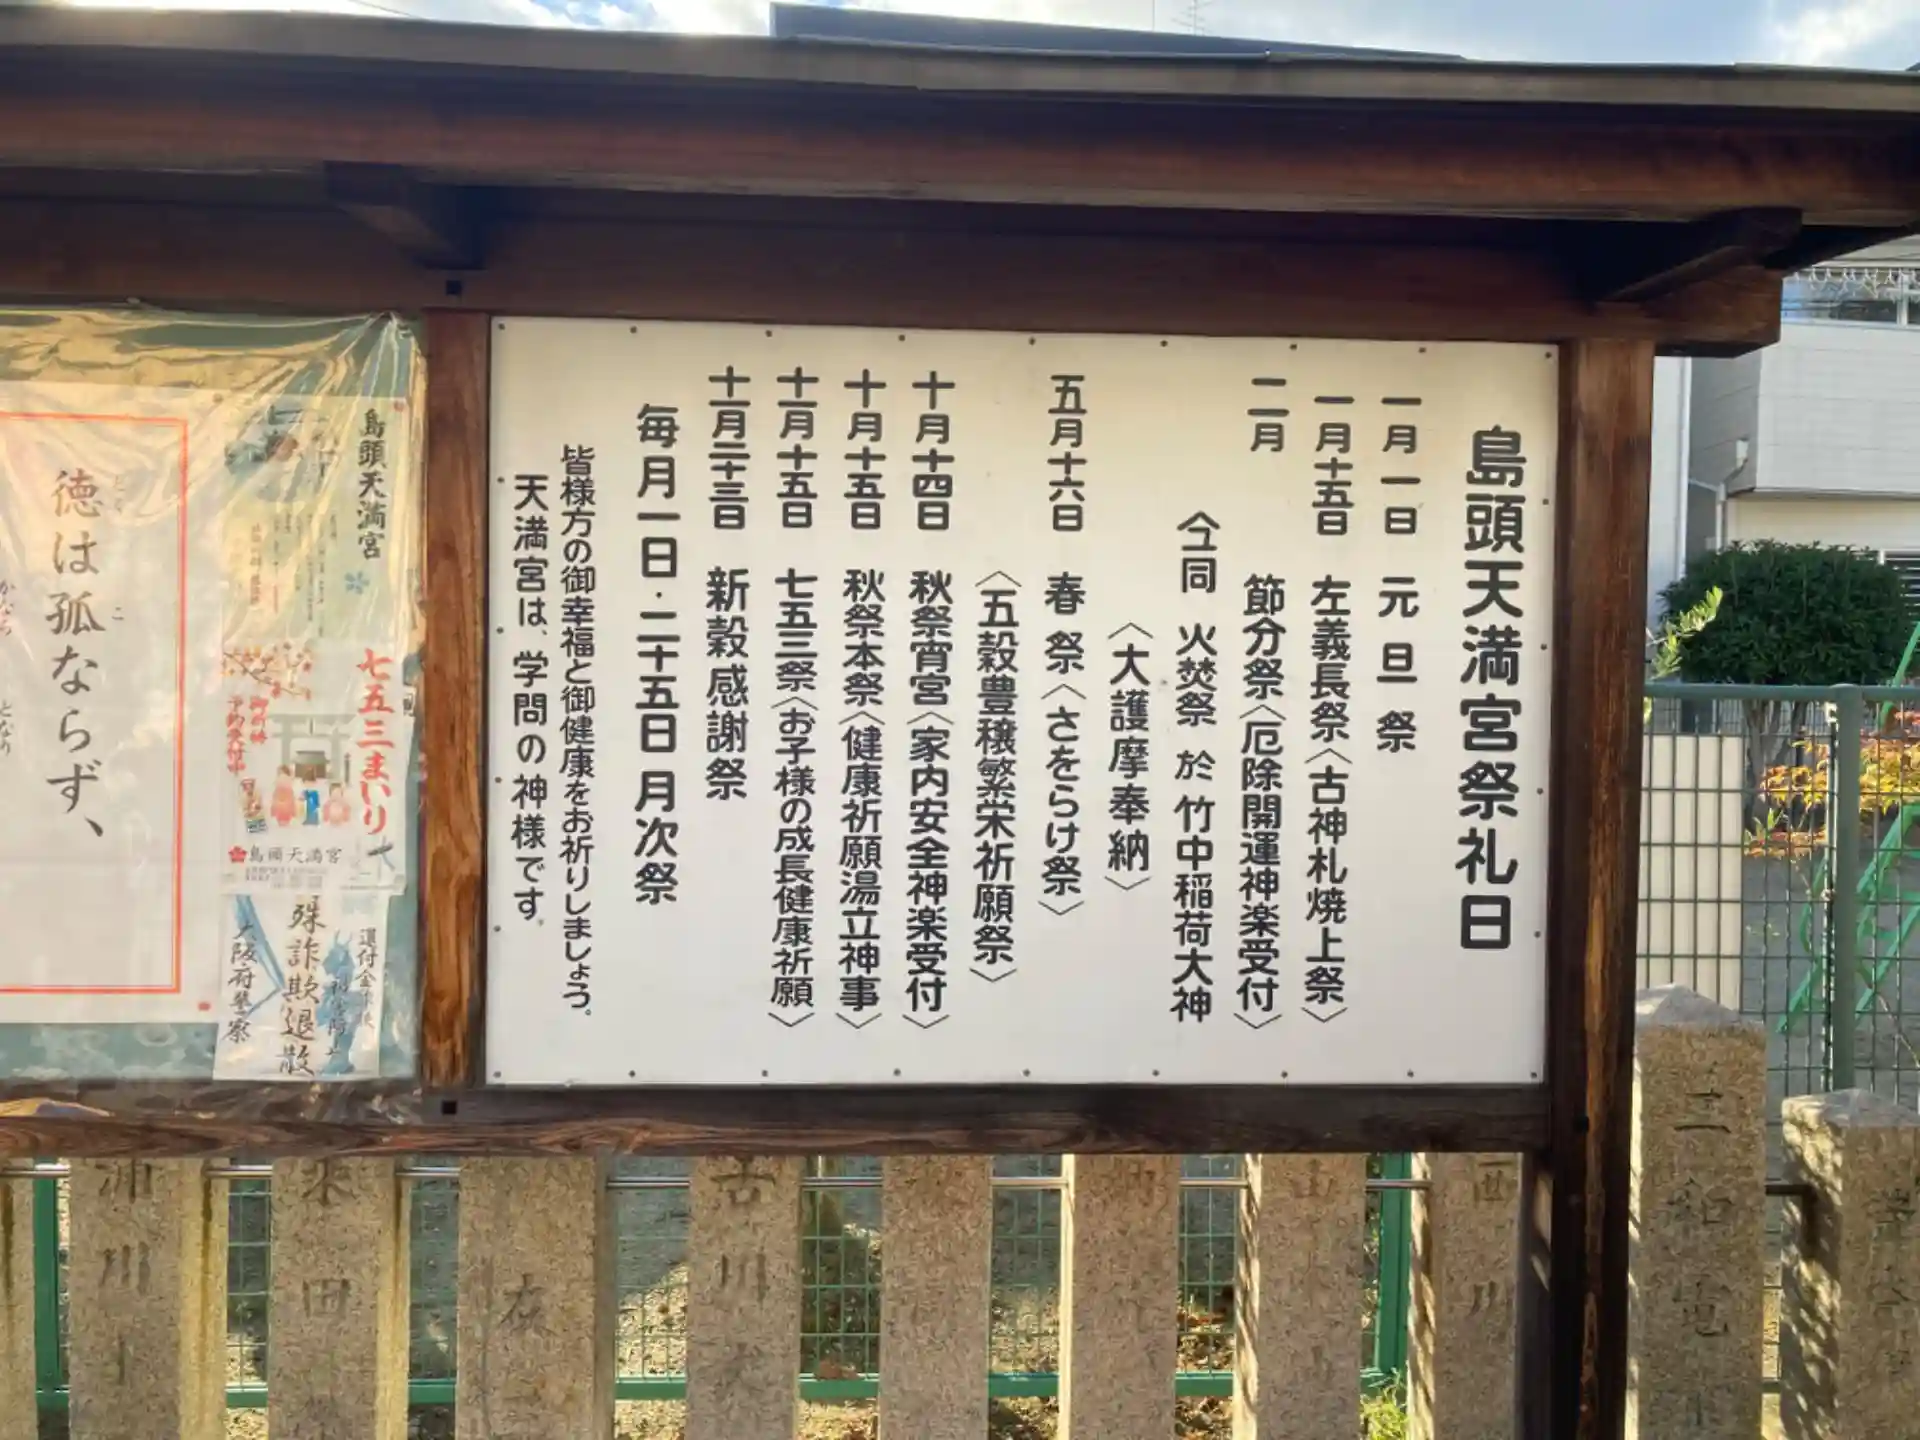 島頭天満宮祭礼日
一月一日 元旦祭
一月十五日 左義長祭〈古神札焼上祭〉
二月 節分祭〈厄除開運神楽受付〉
仝同 火焚祭 於 竹中稲荷大神
〈大護摩奉納〉
五月十六日 春祭〈さをらけ祭〉
〈五穀豊穣繁栄祈願祭〉
十月十四日 秋祭宵宮〈家内安全神楽受付〉
十月十五日 秋祭本祭〈健康祈願湯立神事〉
十一月十五日 七五三祭〈お子様の成長健康祈願〉
十一月二十三日 新穀感謝祭
毎月一日・二十五日 月次祭
皆様方の御幸福と御健康をお祈りしましょう。
天満宮は、学問の神様です。
島頭天満宮
七五三まいり
御祈祷
予約受付中
島頭天満宮
還付金詐欺
殊詐欺退散
大阪府警察
徳は孤ならず、
とく
こ
かなら
となり
古川
西川
三和電